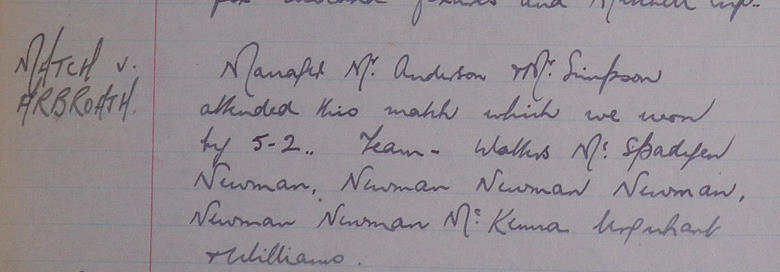 for and Mitchell Cup..
MATCH v.
ARBROATH.
Manager Mr. Anderson & Mr. Simpson
attended this match which we won
by 5-2.. Team - Walker Mc Spadyen
Newman, Newman Newman Newman,
Newman Newman Mc Kenna Urquhart
& Williams.